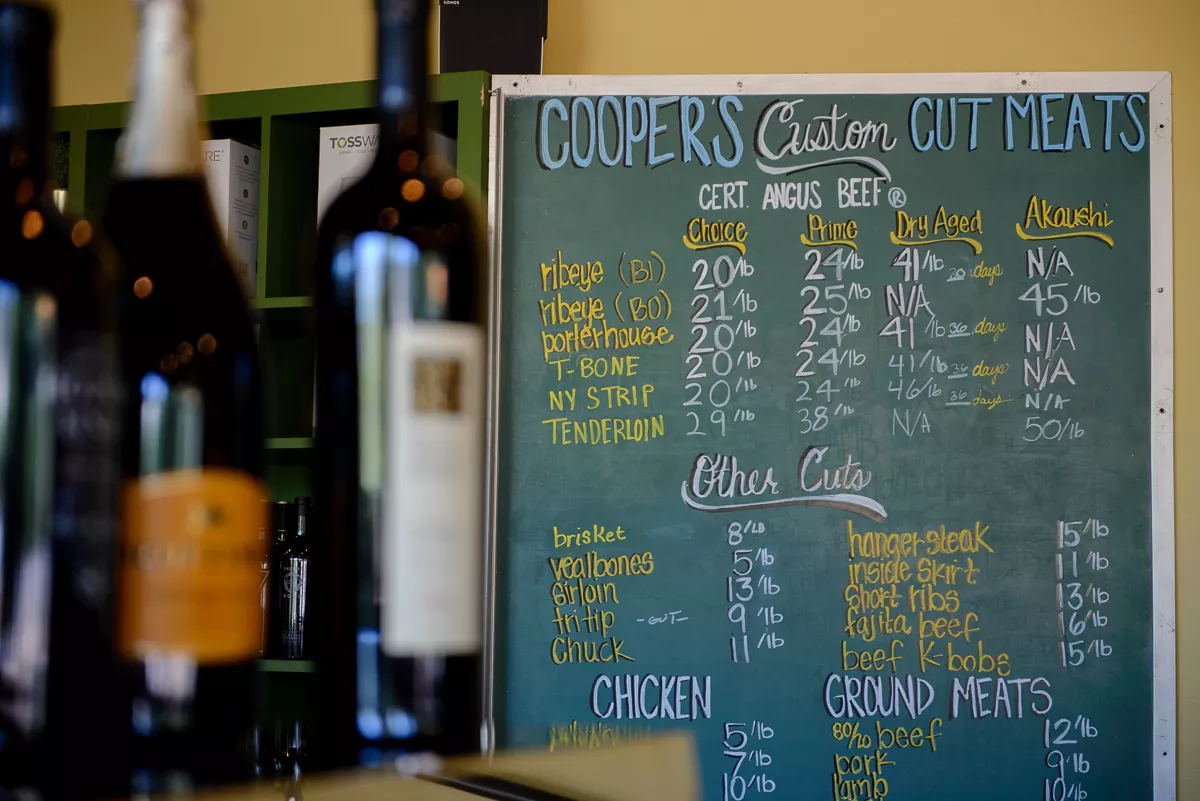 SONOS
TOSSWA
COOPER'S Custom CUT MEATS
CERT. ANGUS BEEF®
Choice Prime Dry Aged Akaushi
ribeye (BI) 20/lb 24/lb 41/lb days N/A
ribeye (BO) 21/lb 25/lb N/A 45/lb
porterhouse 20/lb 24/lb 41/lb 36 days N/A
T-BONE 20/lb 24/lb 41/lb 36 days N/A
NY STRIP 20/lb 24/lb 46/lb 36 days N/A
TENDERLOIN 29/lb 38/lb N/A 50/lb
Other Cuts
brisket 8/LB hanger steak 15/lb
vealbones 5/lb inside skirt 11/lb
sirloin 13/lb short ribs 13/lb
tri tip -OUT- 9/lb fajita beef 16/lb
Chuck 11/lb beef K-bobs 15/lb
CHICKEN GROUND MEATS
5/lb 80/20 beef 12/lb
7/lb pork 9/lb
10/lb lamb 10/lb